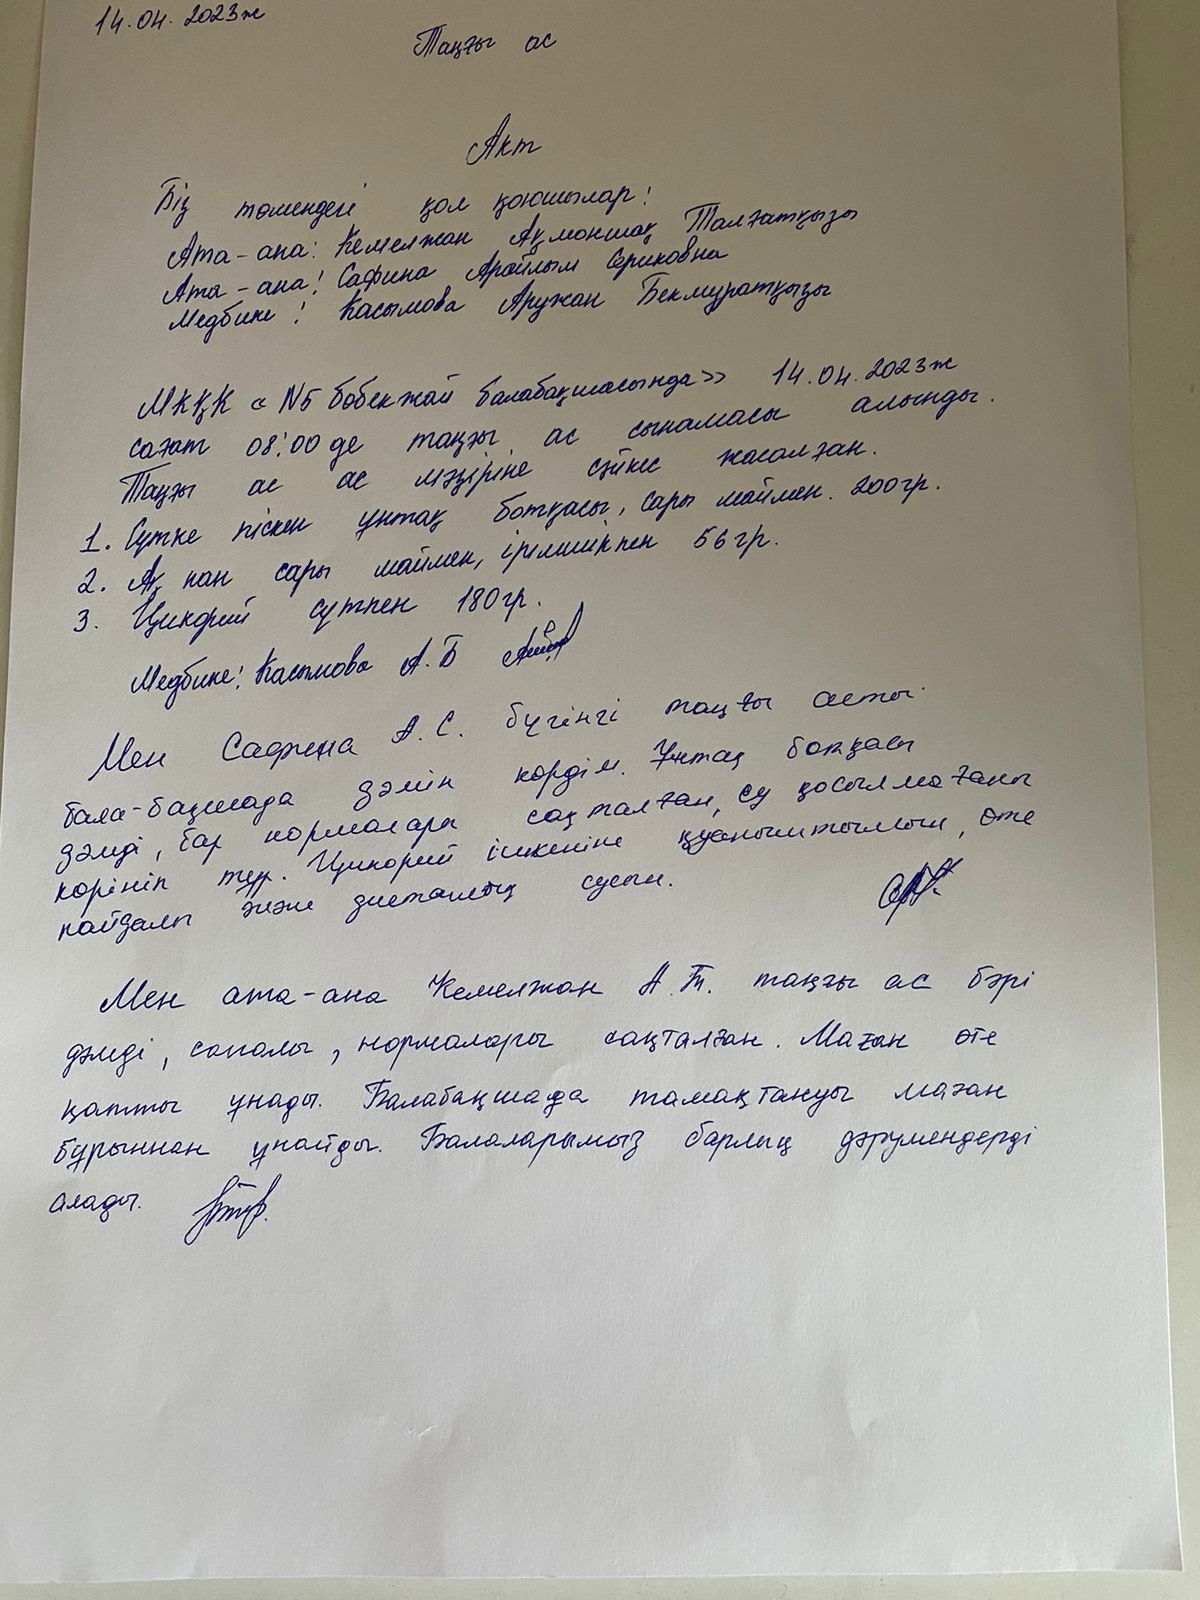 14.04.2023ж
Таңғы ас
Акт
Біз төмендегі қол қоюшылар:
Ата-ана: Кемелжан Ақмоншақ Талғатқызы
Ата-ана: Сафина Арайлым Сериковна
Медбике: Касымова Аружан Бекмуратқызы
МКҚК «N5 Бөбекжай балабақшасында» 14.04.2023ж
сағат 08:00 де таңғы ас сынамасы алынды.
Таңғы ас ас мәзіріне сәйкес жасалған.
1. Сүтке піскен ұнтақ ботқасы, сары маймен. 200гр.
2. Ақ нан сары маймен, ірімшікпен 56гр.
3. Цикорий сүтпен 180гр.
Медбике: Касымова А.Б
Мен Сафина А.С. бүгінгі таңғы асты
бала-бақшада дәмін көрдім. Ұнтақ ботқасы
дәмді, бар нормалары сақталған, су қосылмағаны
көрініп тұр. Цикорий ішкеніне қуаныштымын, өте
пайдалы және диеталық сусын.
Мен ата-ана Кемелжан А.Т. таңғы ас бәрі
дәмді, сапалы, нормалары сақталған. Маған өте
қатты ұнады. Балабақшада тамақтануы маған
бұрыннан ұнайды. Балаларымыз барлық дәрумендерді
алады.